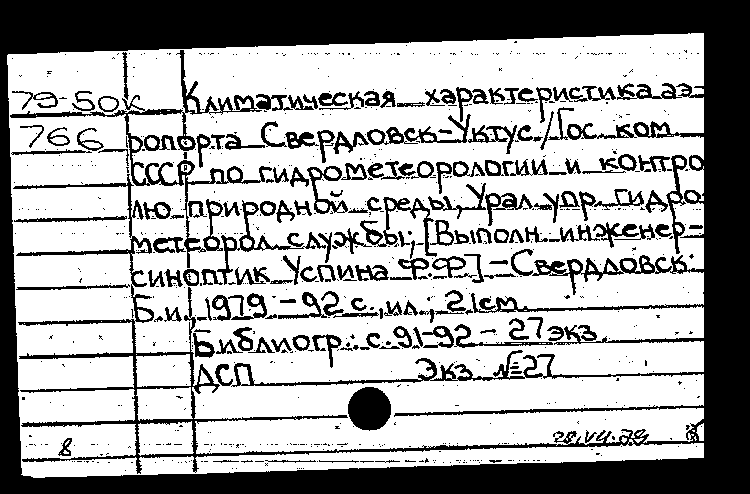 79-50к Климатическая характеристика аэ-
766 ропорта Свердловск-Уктус./Гос. ком.
СССР по гидрометеорологии и контро
лю природной среды, Урал. упр. гидро-
метеорол. службы; [Выполн. инженер-
синоптик Успина Ф.Ф.] - Свердловск:
Б.и., 1979. - 92 с., ил.; 21см.
Библиогр.: с. 91-92 - 27 экз.
ДСП Экз. №27
8